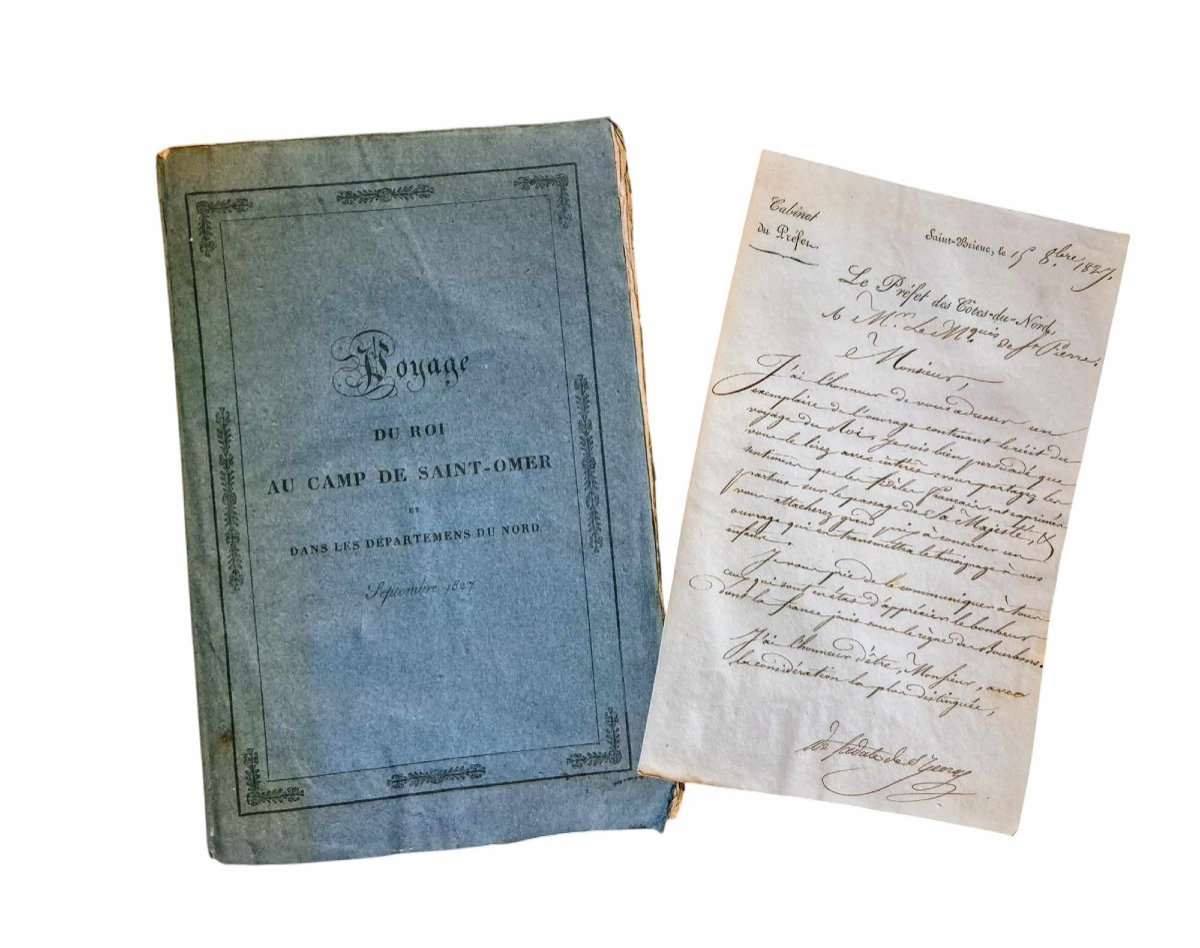 Voyage
DU ROI
AU CAMP DE SAINT-OMER
ET
DANS LES DÉPARTEMENS DU NORD.
Septembre 1827
Cabinet
du Préfet.
Saint-Brieuc, le 15 8.bre 1827.
Le Préfet des Côtes-du-Nord,
A Mr. Le Mquis de St Pierre.
Monsieur,
J'ai l'honneur de vous adresser un
exemplaire de l'ouvrage contenant le récit du
voyage du Roi. Je suis bien persuadé que
vous le lirez avec intérêt, vous partagez les
sentimens que les fidèles français ont exprimés
partout sur le passage de Sa Majesté, &
vous attacherez quelque prix à conserver un
ouvrage qui en transmettra le témoignage à vos
enfans.
Je vous prie de le communiquer à tous
ceux qui sont en état d'apprécier le bonheur
dont la france jouit sous le règne des Bourbons.
J'ai l'honneur d'être, Monsieur, avec
la considération la plus distinguée,
de St Georges